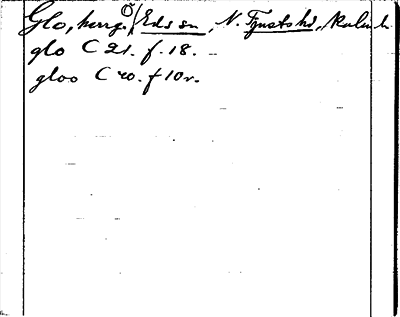 Glo, herrg. Ö/ Eds sn, N. Tjusts hd, Kalm. l.
glo C 21. f. 18.
gloo C 20. f 10 v.